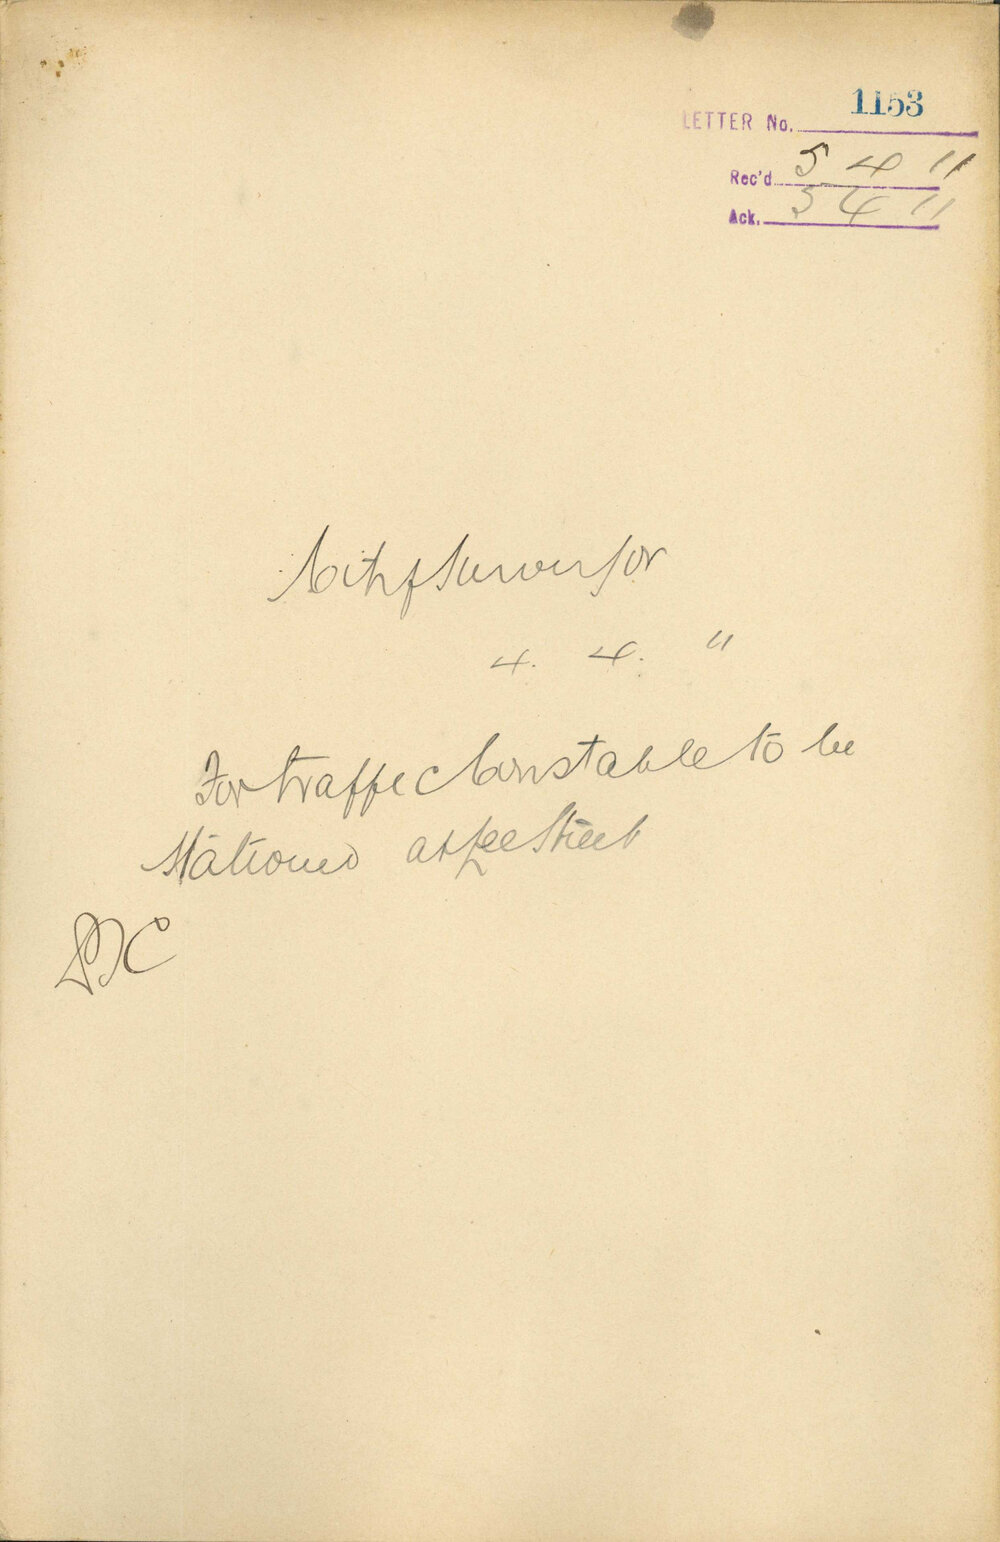 LETTER No. 1153
Rec'd 5 4 11
Ack. 5 4 11
City Surveyor
4. 4. 11
For traffic Constable to be
Stationed at Lee Street